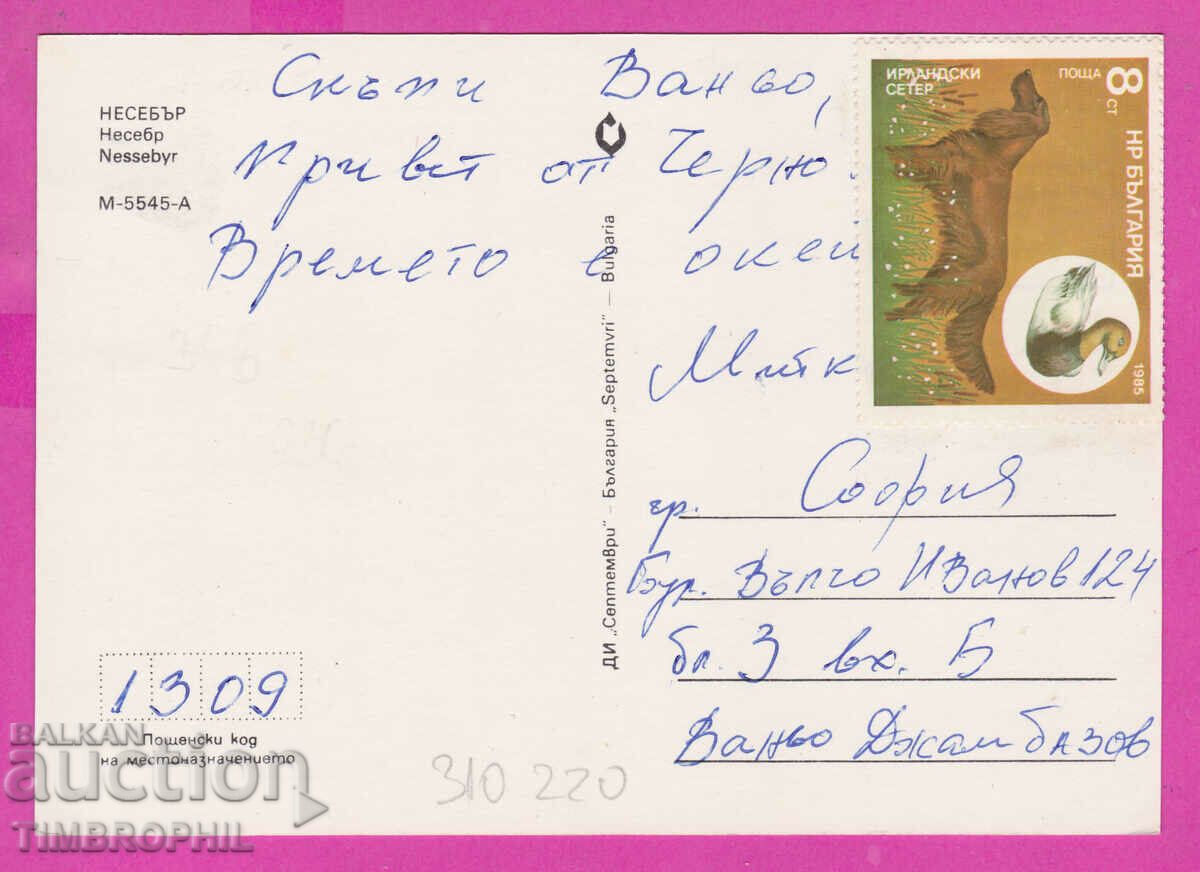 НЕСЕБЪР
Несебр
Nessebyr
М-5545-А
Скъпи Ваньо,
Привет от Черно
Времето е окей
Митк
ДИ „Септември“ — България „Septemvri“ — Bulgaria
ИРЛАНДСКИ
СЕТЕР
ПОЩА
8 СТ
НР БЪЛГАРИЯ
1985
гр. София
Бул. Вълчо Иванов 124
бл. 3 вх. Б
Ваньо Джамбазов
1309
Пощенски код
на местоназначението
310 220
BALKAN
auction
TIMBROPHIL